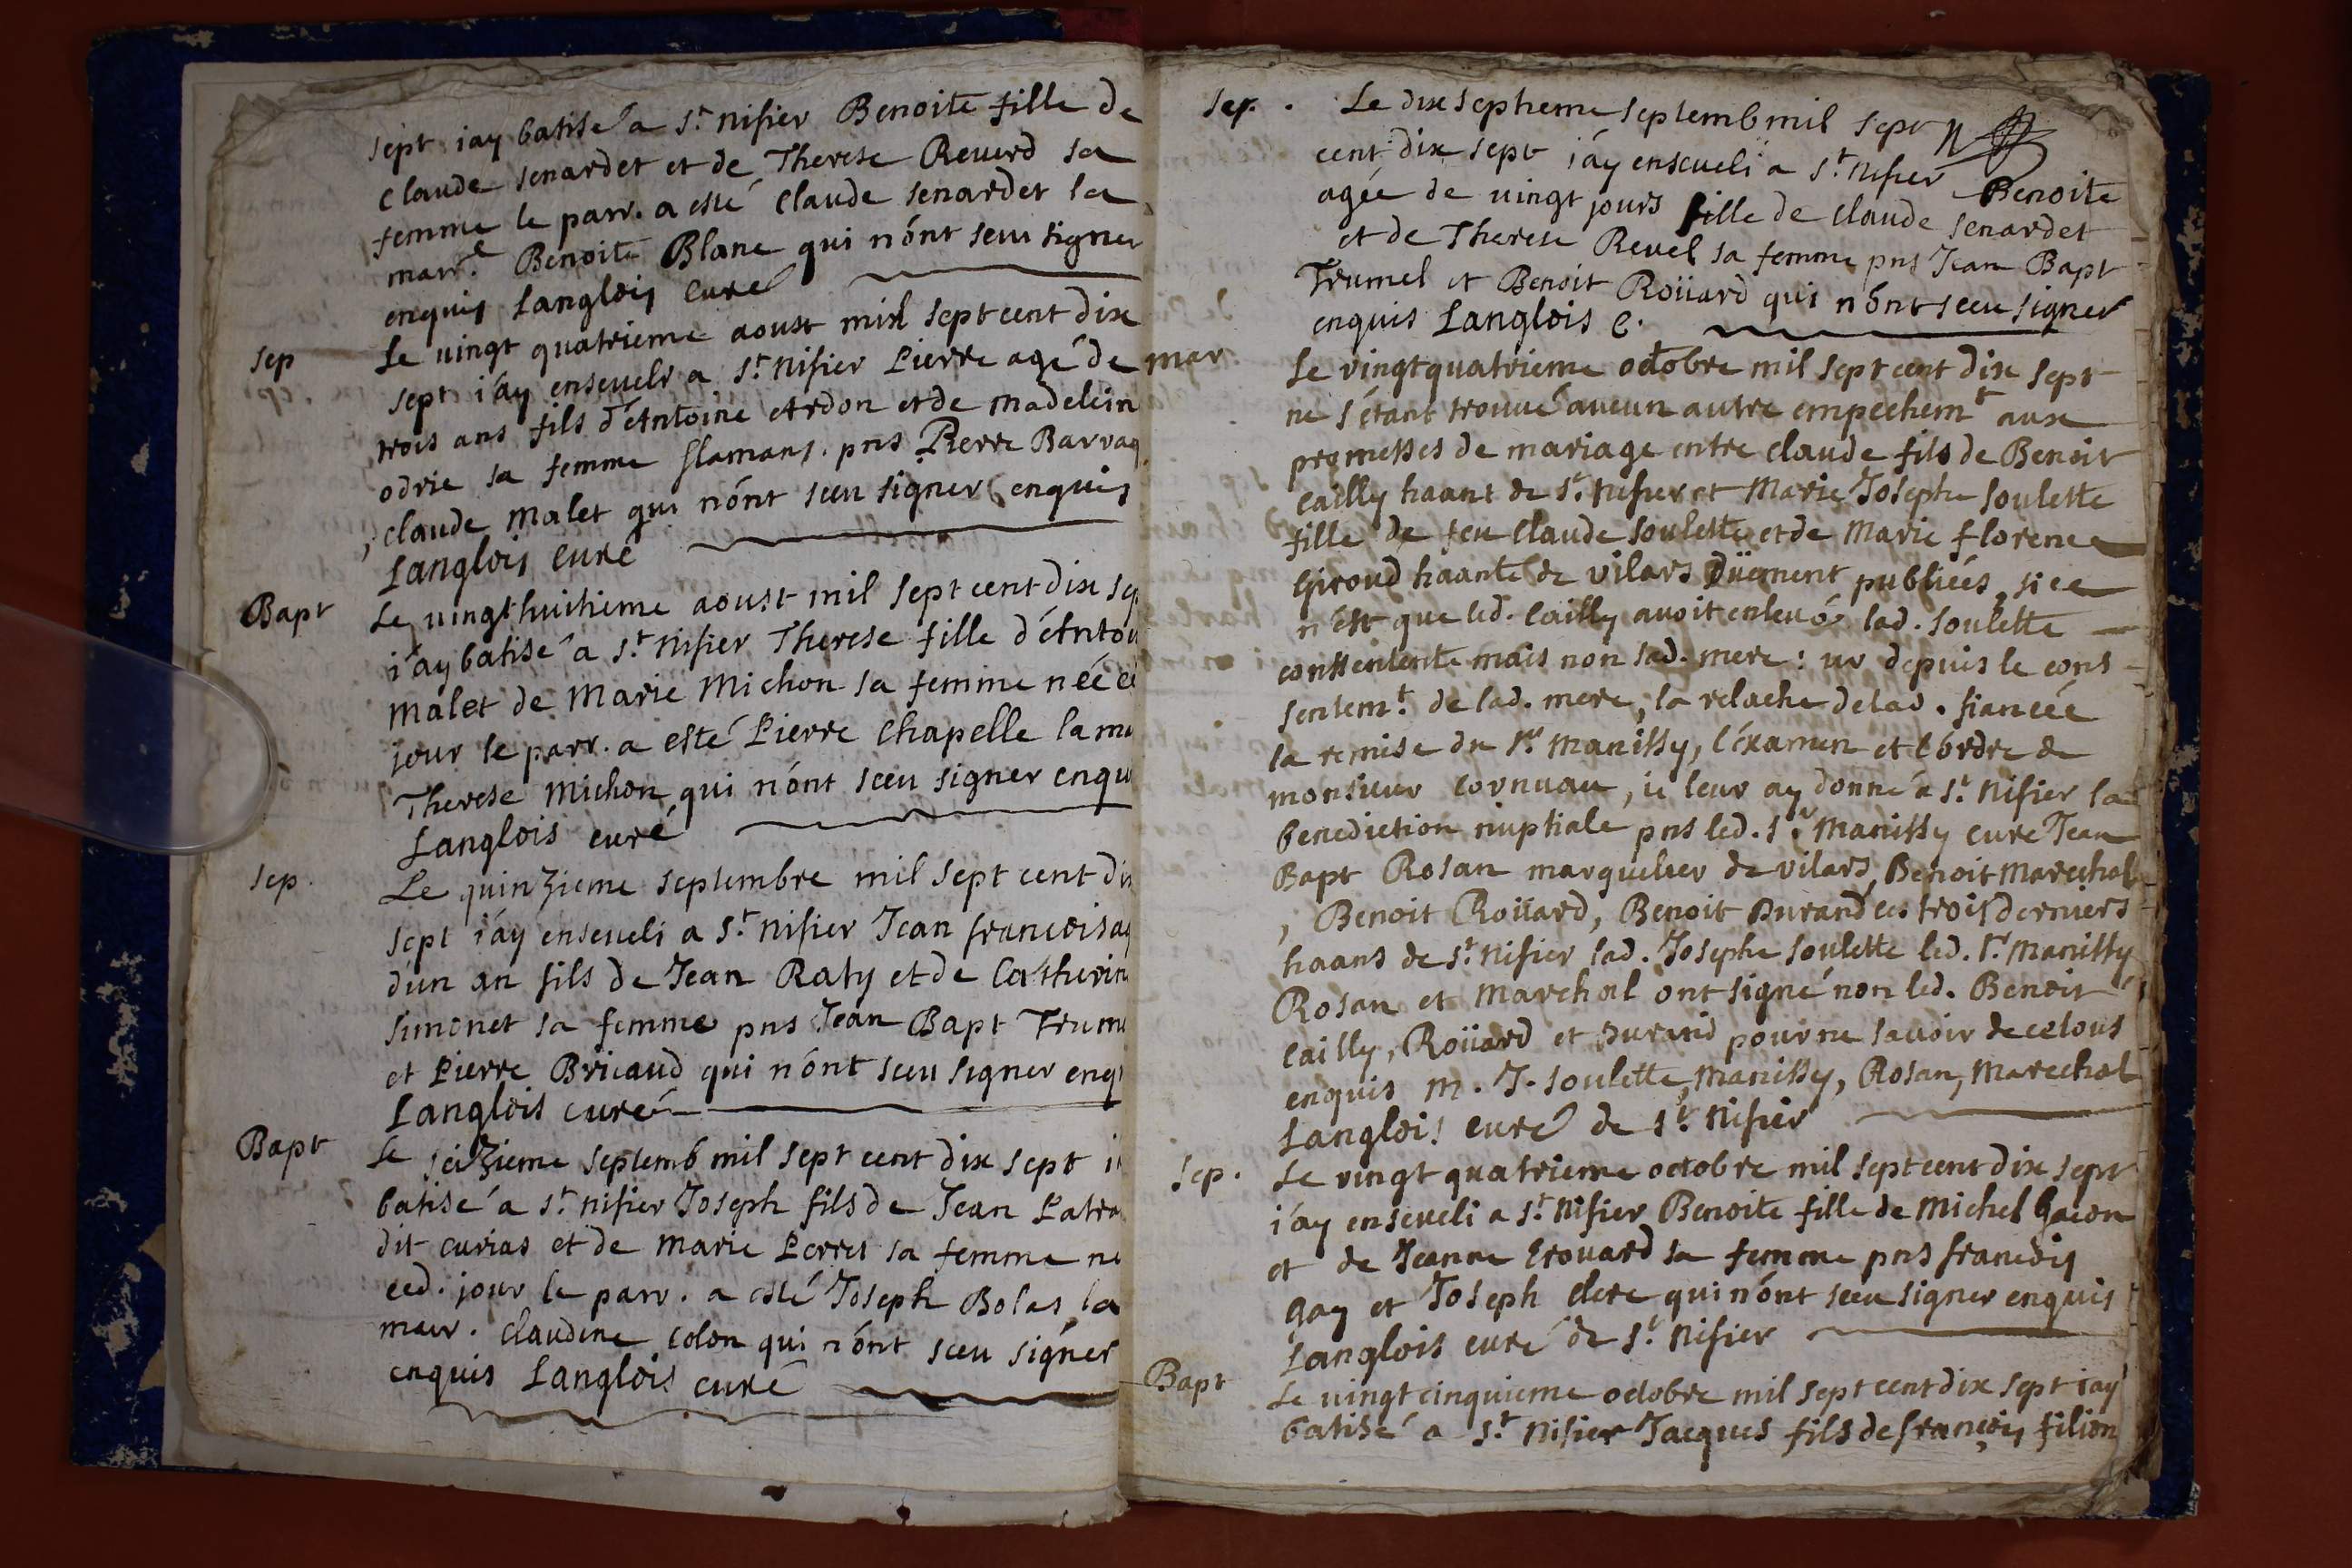 sept iay batisé a St nisier Benoite fille de
Claude senardet et de Therese Reuerd sa
femme le parr. a esté Claude senardet la
marr.e Benoite Blanc qui n'ónt seeu signer
enquis Langlois curé
sep
Le uingt quatrieme aoust mil sept cent dix
sept i'ay enseueli a St nisier Pierre agé de
trois ans fils d'Antoine Ardon et de Madelein
odrie sa femme flamans. pns Pierre Barraq
, Claude Malet qui n'ónt seeu signer enquis
Langlois curé
Bapt
Le uingt huitieme aoust mil sept cent dix sep
i'ay batisé a St nisier Therese fille d'Antoi
Malet de Marie Michon sa femme néé ce
jour le parr. a esté Pierre Chapelle la ma
Therese Michon qui n'ónt sceu signer enqui
Langlois curé
sep.
Le quinzieme septembre mil sept cent dix
sept i'ay enseueli a St nisier Jean francois ag
dun an fils de Jean Raty et de Catherin
Simonet sa femme pns Jean Bapt Trume
et Pierre Bricaud qui n'ónt sceu signer enqu
Langlois curé
Bapt
Le seizieme septemb mil sept cent dix sept i'
batisé a St nisier Joseph fils de Jean Patra
dit curias et de Marie Perret sa femme né
ced. jour le parr. a esté Joseph Bolas la
marr. Claudine Colon qui n'ónt sceu signer
enquis Langlois curé
sep.
Le dix septieme septemb mil sept
cent dix sept i'ay enseueli a St nisier Benoite
agée de uingt jours fille de Claude senardet
et de Therese Reuel sa femme pns Jean Bapt
Trumel et Benoit Roüard qui n'ónt sceu signer
enquis Langlois C.
mar.
Le vingt quatrieme octobre mil sept cent dix sept
ne s'étant trouué aucun autre empechemt aux
promesses de mariage entre Claude fils de Benoit
Cailly haant de St nisier et Marie Josephe Soulette
fille de feu Claude Soulette et de Marie florence
Giroud haante de vilars Düement publiées, si ce
n'ést que led. Cailly auoit enleué lad. Soulette
conssentente mais non sad. mere: uu depuis le cons-
sentemt. de lad. mere, la relache de lad. fiancée
la remise du Sr Manissy, l'éxamen et l'órdre de
monsieur Cornuau, ie leur ay donné a St nisier la
benediction nuptiale pns led. Sr Manissy curé Jean
Bapt Rosan marguelier de vilars, Benoit Marechal
, Benoit Roüard, Benoit Durand les trois derniers
haans de St nisier lad. Josephe Soulette led. Sr Manissy
Rosan et Marchal ont signé non led. Benoit
Cailly, Roüard et Durand pour ne sauoir de ce tous
enquis M. J. Soulette, Manissy, Rosan, Marechal
Langlois curé de St nisier
Sep.
Le vingt quatrieme octobre mil sept cent dix sept
i'ay enseueli a St nisier Benoite fille de Michel Gacon
et de Jeanne Erouard sa femme pns francois
Gay et Joseph Clerc qui n'ónt sceu signer enquis
Langlois curé de St nisier
Bapt
Le uingt cinquieme octobre mil sept cent dix sept iay
batisé a St nisier Jacques fils de françois filion